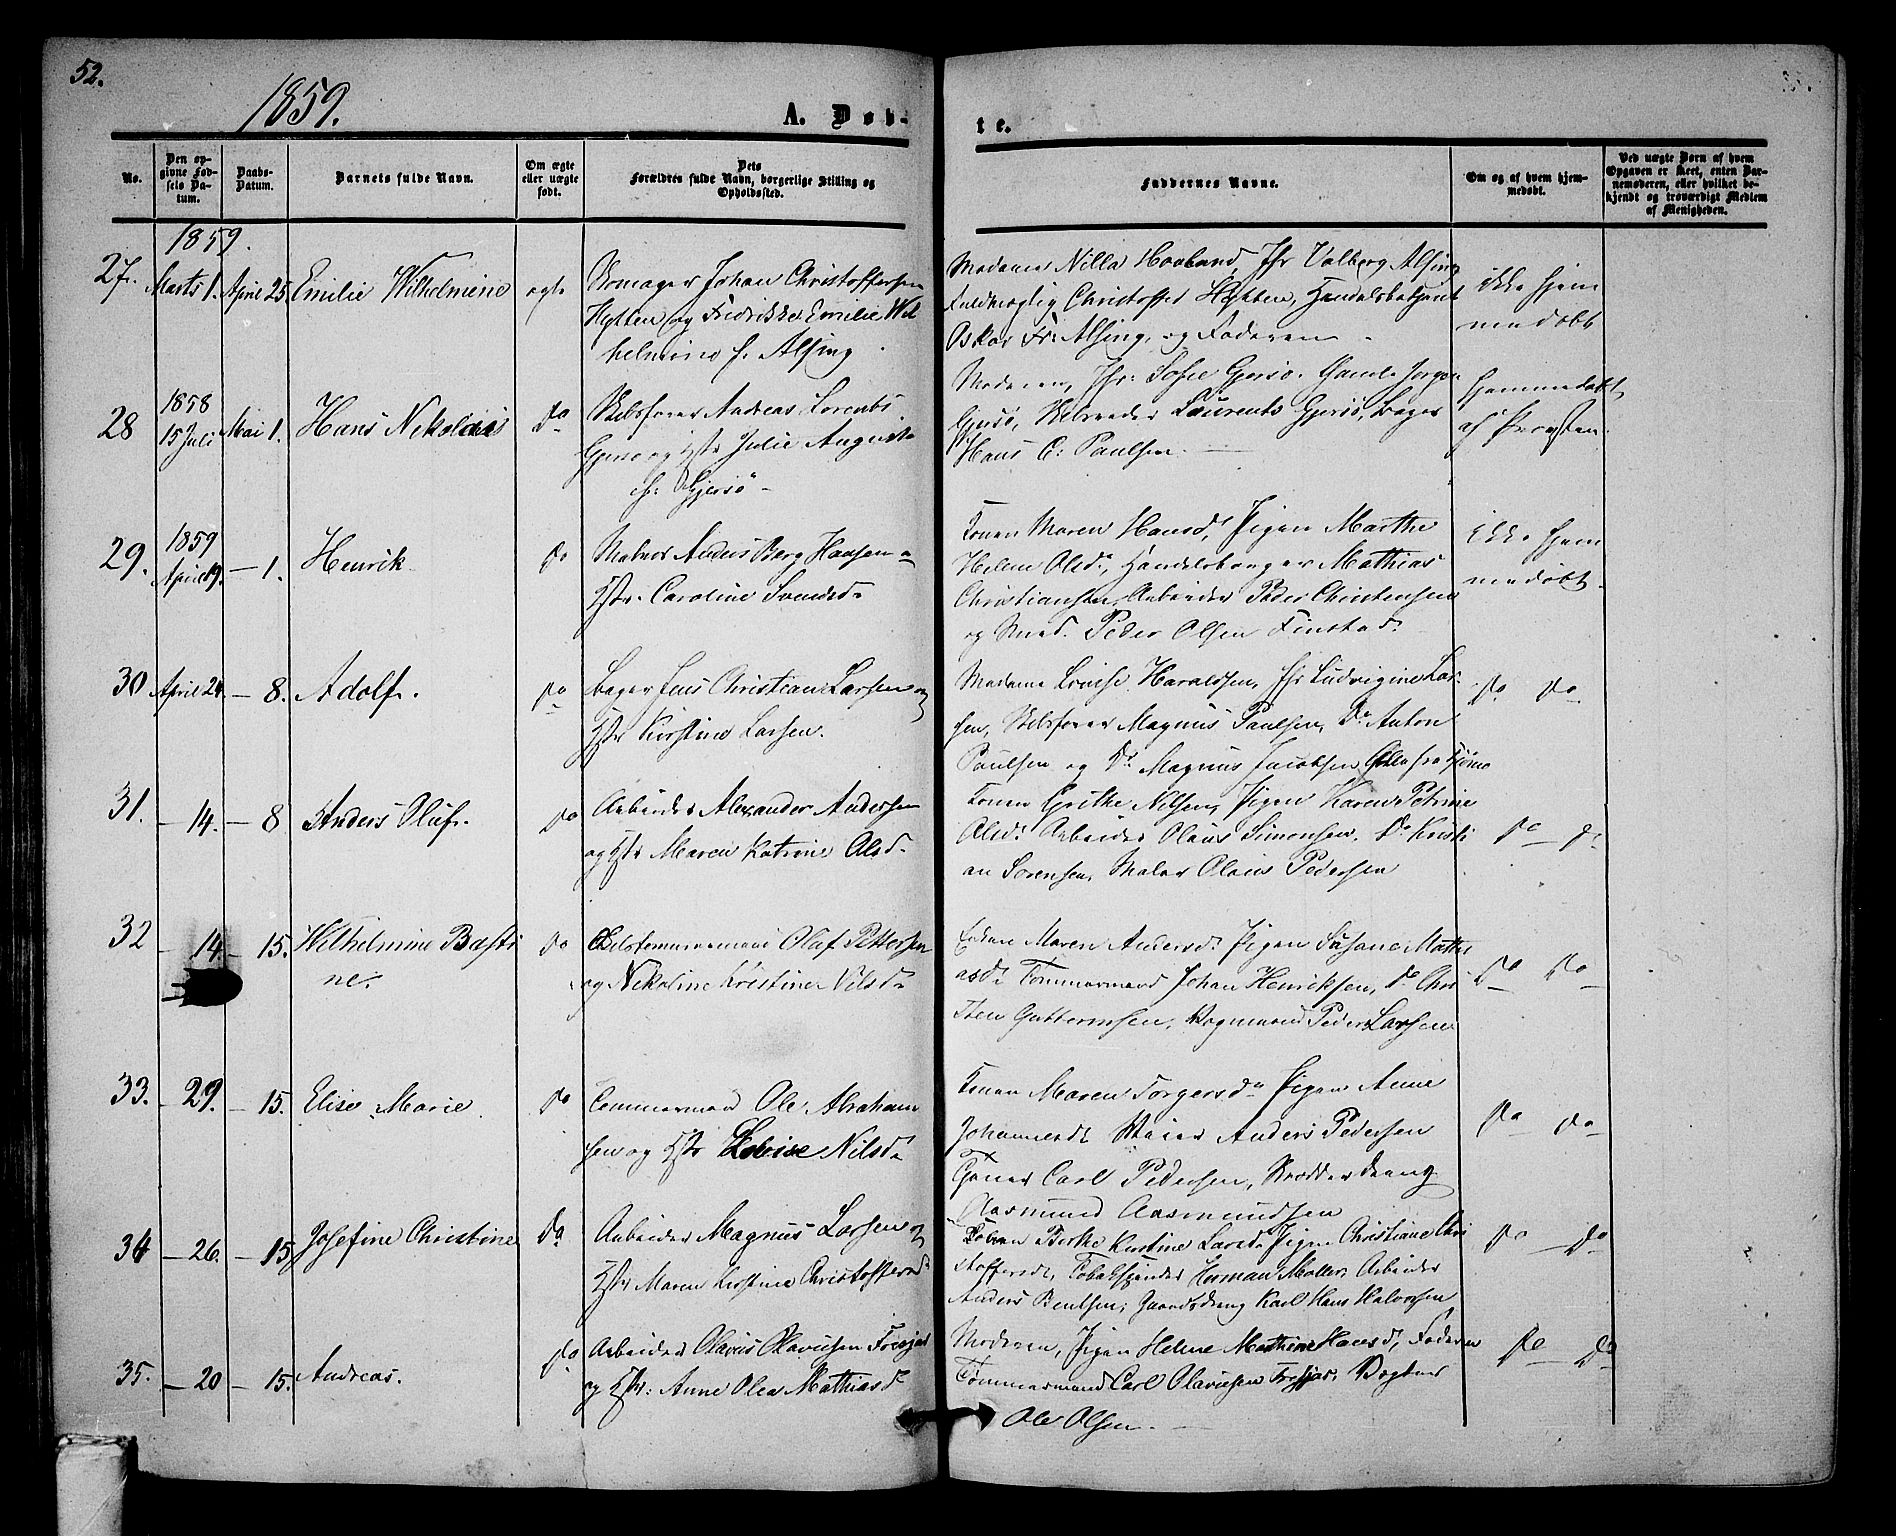 52.
1859.
A. Døb-
te.
No.
Den op-
givne Fød-
sels Da-
tum.
Daabs-
Datum.
Barnets fulde Navn.
Om ægte
eller uægte
født.
Dets
Forældres fulde Navn, borgerlige Stilling og
Opholdssted.
Faddernes Navne.
Om og af hvem hjem-
medøbt.
Ved uægte Børn af hvem
Opgaven er skeet, enten Bar-
nemoderen, eller hvilket be-
kjendt og troværdigt Medlem
af Menigheden.
1859.
27. Marts 1. April 25 Emilie Wilhelmine ægte
Skomager Johan Christoffersen
Hytten og Fredrikke Emilie Wil
helmine f. Alsing
Madame Nilla Hovland, Jfr Valborg Alsing
Fuldmægtig Christoffer Hytten, Handelsbetjent
Oskar Fr. Alsing, og Faderen
ikke hjem
medøbt
28 1858 15 Juli Mai 1. Hans Nikolai Do
Skibsfører Andreas Lorents
Gjersø og Hstr Julie Augusta
f. Gjersø
Moderen, Jfr. Sofie Gjersø. Gamle Jørgen
Gjersø, Skibsreder Laurents Gjersø, Bager
Hans C. Paulsen.
hjemmedøbt
af Provsten.
29. 1859 April 19. — 1. Henrik Do
Matros Anders Berg Hansen o
Hstr. Caroline Svendsd.
Konen Maren Hansd, Pigen Marthe
Helene Olsd., Handelsborger Mathias
Christiansen, Arbeider Peder Christensen
og Smed. Peder Olsen Finstad.
ikke hjem
medøbt.
30 April 24 — 8. Adolf. Do
Bager Jens Christian Larsen og
Hstr Kirstine Larsen.
Madame Lovise Haraldsen, Jfr Ludvigine Lar-
sen, Skibsfører Magnus Paulsen, Do Anton
Paulsen og Do Magnus Jacobsen, Alle fra Tjømø
Do Do
31. — 14. — 8 Anders Oluf. Do
Arbeider Alexander Andersen
og Hstr Maren Katrine Olsd.
Konen Grethe Nilsen, Pigen Karen Petrine
Olsd. Arbeider Olaus Simonsen, Do Kristi
an Sørensen, Maler Olaus Pedersen
Do — Do
32 — 14 — 15. Wilhelmine Basti
ne. Do
Skibstømmermand Oluf Pettersen
og Nikoline Kristine Nilsd.
Konen Maren Andersd. Pigen Susane Mathi
asd. Tømmermand Johan Henriksen, Do Chri
sten Guttormsen, Vognmand Peder Larsen
Do Do
33. — 29. — 15. Elise Marie Do
Tømmermand Ole Abraham
sen og Hstr Lovise Nilsd.
Konen Maren Torgersd. Pigen Anne
Johannesd. Anders Pedersen
Carl Pedersen, Skrædder dreng
Aasmund Aasmundsen
Do Do
34 — 26. — 15. Josefine Christine Do
Arbeider Magnus Larsen og
Hstr Maren Kirstine Christoffersd.
Konen Berthe Kirstine Larsd. Pigen Christiane Chri
stoffersd., Tobakspinder Herman Møller, Arbeider
Anders Bentsen, Gaardsdreng Karl Hans Halvorsen
Do — Do
35. — 20 — 15. Andreas. Do
Arbeider Olavus Olavusen
og Hstr. Anne Olea Mathiasd.
Moderen, Pigen Helene Mathine Hansd, Faderen
Tømmermand Carl Olavusen
Ole Olsen.
Do — Do